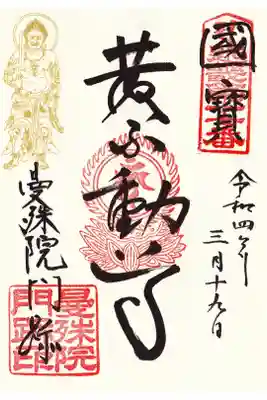 國寶
令和四年
三月十九日
黄不動尊
曼殊院門跡
曼殊院
門跡印